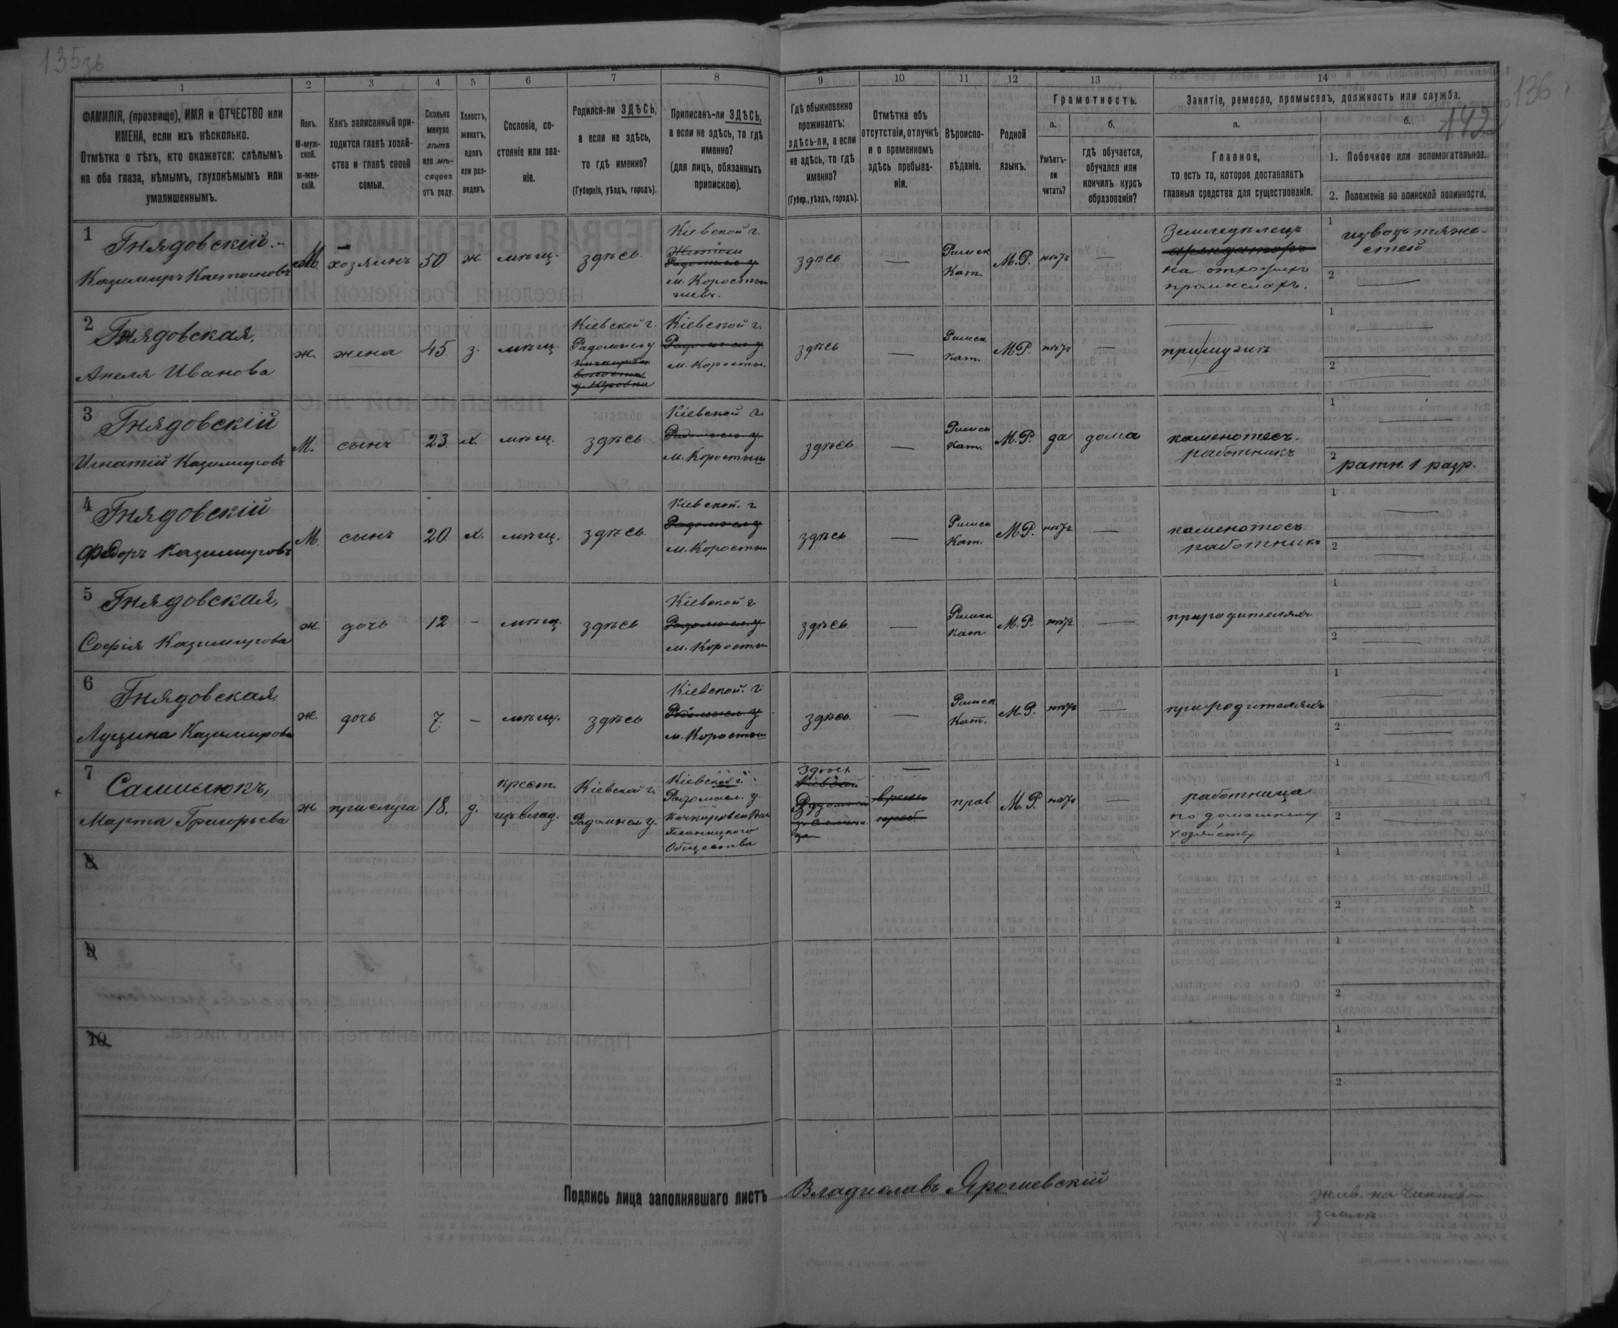 135зв
136
142
1
2
3
4
5
6
7
8
9
10
11
12
13
14
ФАМИЛІЯ, (прозвище), ИМЯ и ОТЧЕСТВО или
ИМЕНА, если ихъ нѣсколько.
Отмѣтка о тѣхъ, кто окажется: слѣпымъ
на оба глаза, нѣмымъ, глухонѣмымъ или
умалишеннымъ.
Полъ.
М-муж-
ской.
Ж-жен-
скій.
Какъ записанный при-
ходится главѣ хозяй-
ства и главѣ своей
семьи.
Сколько
минуло
лѣтъ
или мѣ-
сяцевъ
отъ роду.
Холостъ,
женатъ,
вдовъ
или раз-
веденъ.
Сословіе, со-
стояніе или зва-
ніе.
Родился-ли ЗДѢСЬ,
а если не здѣсь,
то гдѣ именно?
(Губернія, уѣздъ, городъ).
Приписанъ-ли ЗДѢСЬ,
а если не здѣсь, то гдѣ
именно?
(для лицъ, обязанныхъ
припискою).
Гдѣ обыкновенно
проживаетъ:
здѣсь-ли, а если
не здѣсь, то гдѣ
именно?
(Губер., уѣздъ, городъ).
Отмѣтка объ
отсутствіи, отлучкѣ
и о временномъ
здѣсь пребыва-
ніи.
Вѣроиспо-
вѣданіе.
Родной
языкъ.
Грамотность.
а.
Умѣетъ-
ли
читать?
б.
гдѣ обучается,
обучался или
кончилъ курсъ
образованія?
Занятіе, ремесло, промыселъ, должность или служба.
а.
Главное,
то есть то, которое доставляетъ
главныя средства для существованія.
б.
1. Побочное или вспомогательное.
2. Положеніе по воинской повинности.
1
Гнядовскій
Казимиръ Каетановъ
М.
хозяинъ
50
ж
мѣщ.
здѣсь
Кіевской г.
м. Коростышевъ.
здѣсь
—
Римск
Кат.
М.Р.
нѣтъ
—
Земледѣлецъ
на отхожихъ
промыслахъ.
1 извозъ тяже-
стей
2 —
2
Гнядовская,
Анеля Иванова
ж.
жена
45
з.
мѣщ.
Кіевской г.
Радомысл у
Кіевской г.
Радомысл у
м. Коросты
здѣсь
—
Римск
Кат.
М.Р.
нѣтъ
—
при мужѣ
1 —
2 —
3
Гнядовскій
Игнатій Казимировъ
М.
сынъ
23
х
мѣщ.
здѣсь
Кіевской г.
Радомысл у
м. Коростыш
здѣсь
—
Римск
Кат.
М.Р.
да
дома
каменотесъ
работникъ
1 —
2 ратн. 1 разр.
4
Гнядовскій
Федоръ Казимировъ
М.
сынъ
20
х.
мѣщ.
здѣсь
Кіевской. г
Радомысл у
м. Коросты
здѣсь
—
Римск
Кат.
М.Р.
нѣтъ
—
каменотесъ
работникъ
1 —
2 —
5
Гнядовская,
Софія Казимирова
ж
дочь
12
–
мѣщ.
здѣсь
Кіевской г
Радомысл у
м. Коросты
здѣсь
—
Римск
Кат
М.Р.
нѣтъ
—
при родителяхъ
1 —
2 —
6
Гнядовская
Луцина Казимирова
ж.
дочь
7.
–
мѣщ.
здѣсь
Кіевской. г
Радомысл у
м. Коросты
здѣсь
—
Римск
Кат.
М.Р.
нѣтъ
—
при родителяхъ
1 —
2 —
7
Самисюкъ,
Марта Григорьева
ж
прислуга
18.
д.
крест.
изъ влад.
Кіевской г.
Радомысл у.
Кіевской г.
Радомысл. у.
Общества
здѣсь
—
прав
М.Р.
нѣтъ
—
работница
по домашнему
хозяйству
1 —
2 —
8
1
2
9
1
2
10
1
2
Подпись лица заполнявшаго листъ Владиславъ Ярошевскій
жив. на чиншевой
землѣ